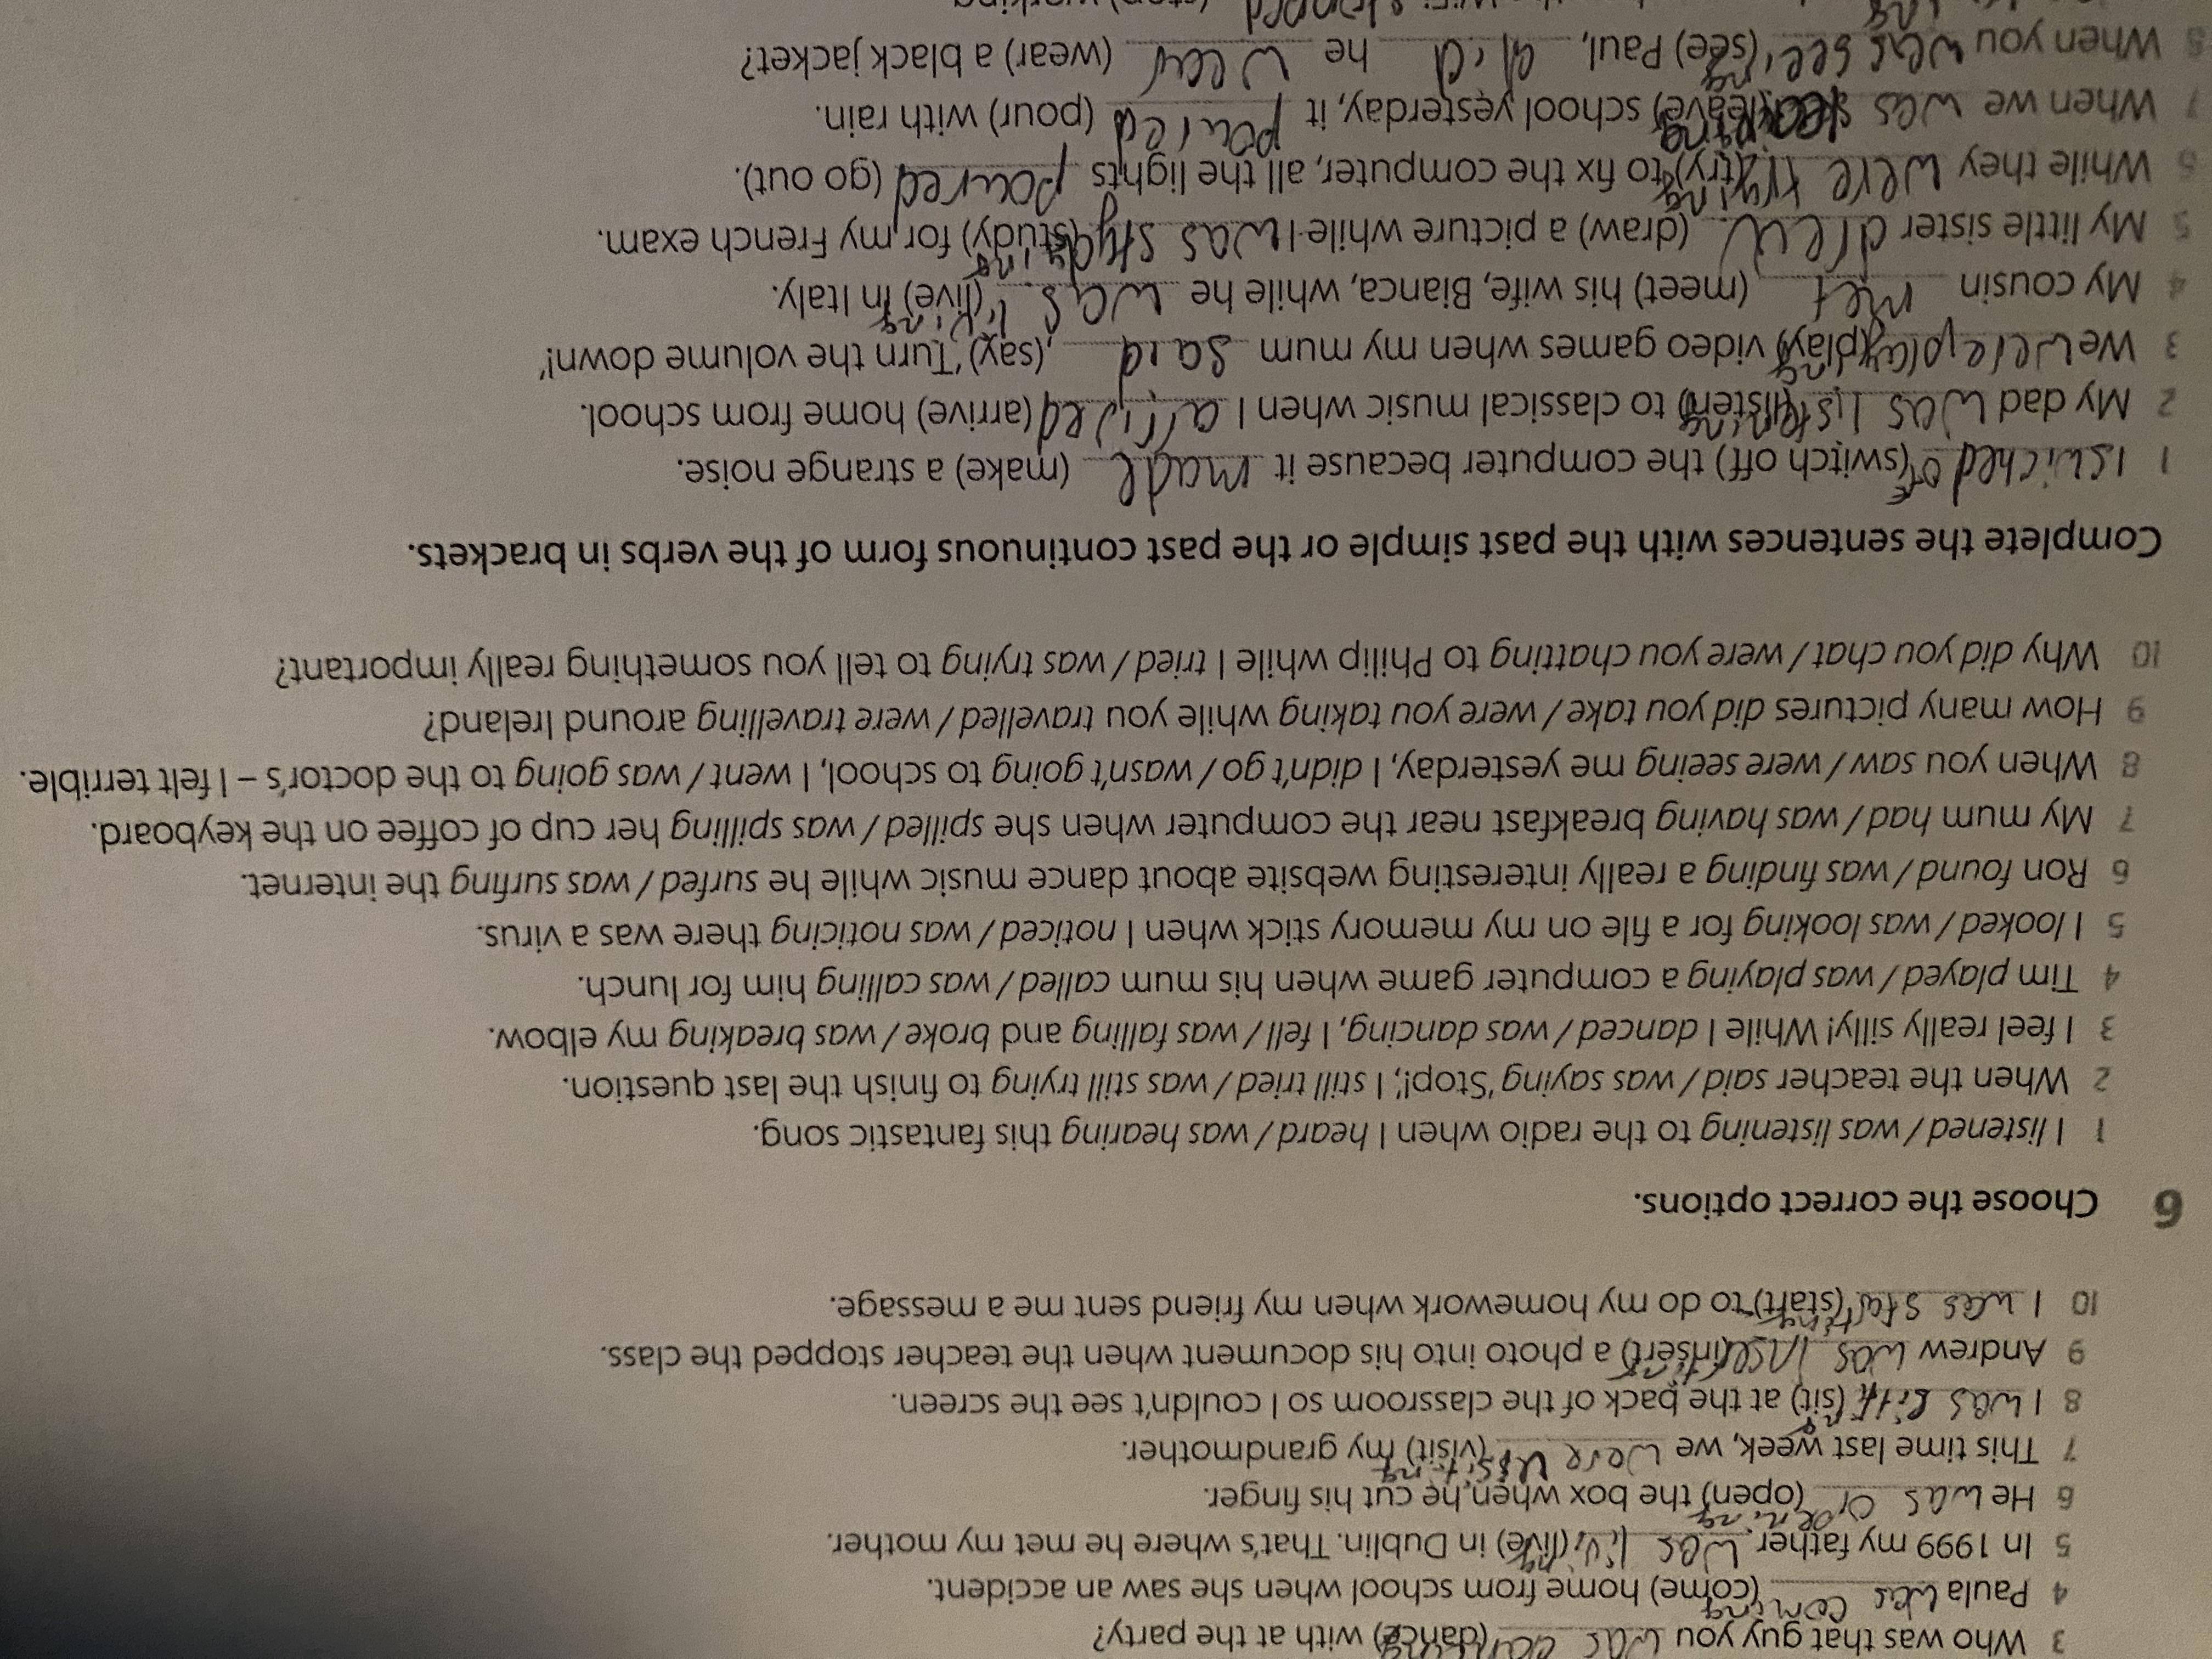 3 Who was that guy you was dancing (dance) with at the party?
4 Paula was coming (come) home from school when she saw an accident.
5 In 1999 my father was living (live) in Dublin. That's where he met my mother.
6 He was opening (open) the box when he cut his finger.
7 This time last week, we were visiting (visit) my grandmother.
8 I was sitting (sit) at the back of the classroom so I couldn't see the screen.
9 Andrew was inserting (insert) a photo into his document when the teacher stopped the class.
10 I was starting (start) to do my homework when my friend sent me a message.
6 Choose the correct options.
1 I listened / was listening to the radio when I heard / was hearing this fantastic song.
2 When the teacher said / was saying 'Stop!', I still tried / was still trying to finish the last question.
3 I feel really silly! While I danced / was dancing, I fell / was falling and broke / was breaking my elbow.
4 Tim played / was playing a computer game when his mum called / was calling him for lunch.
5 I looked / was looking for a file on my memory stick when I noticed / was noticing there was a virus.
6 Ron found / was finding a really interesting website about dance music while he surfed / was surfing the internet.
7 My mum had / was having breakfast near the computer when she spilled / was spilling her cup of coffee on the keyboard.
8 When you saw / were seeing me yesterday, I didn't go / wasn't going to school, I went / was going to the doctor's – I felt terrible.
9 How many pictures did you take / were you taking while you travelled / were travelling around Ireland?
10 Why did you chat / were you chatting to Philip while I tried / was trying to tell you something really important?
Complete the sentences with the past simple or the past continuous form of the verbs in brackets.
1 I swiched off (switch off) the computer because it made (make) a strange noise.
2 My dad was listening (listen) to classical music when I arrived (arrive) home from school.
3 We were playing (play) video games when my mum said, (say) 'Turn the volume down!'
4 My cousin met (meet) his wife, Bianca, while he was living (live) in Italy.
5 My little sister drew (draw) a picture while I was studying (study) for my French exam.
6 While they were trying (try) to fix the computer, all the lights poured (go out).
7 When we was (leave) school yesterday, it poured (pour) with rain.
8 When you was seeing (see) Paul, did he wear (wear) a black jacket?
stopped (stop) working